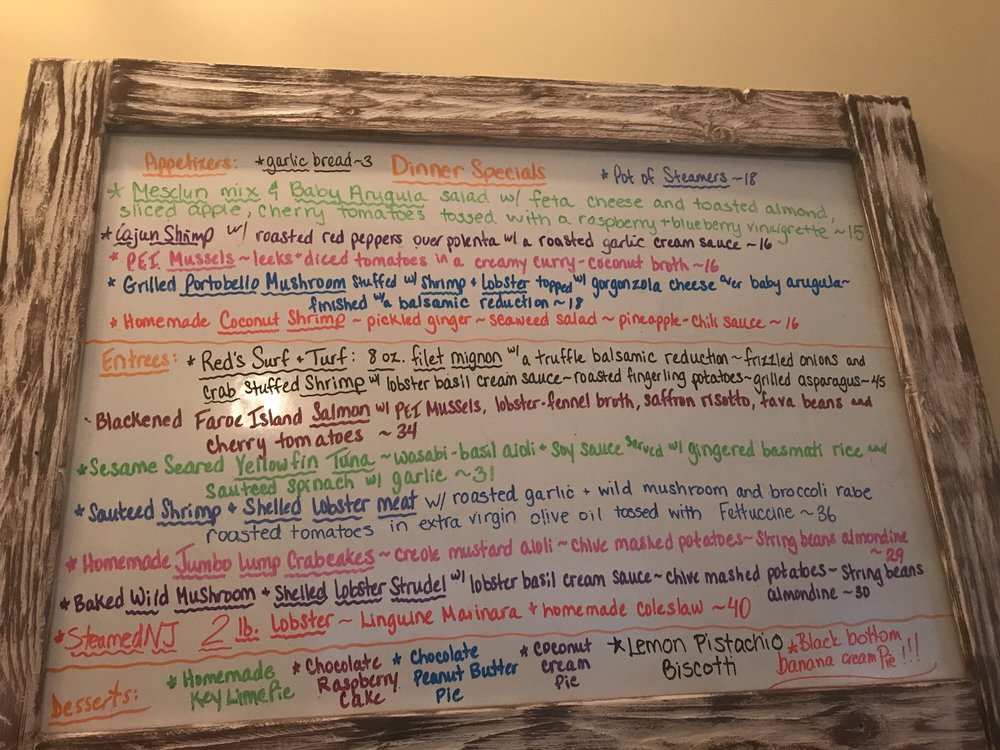 Appetizers: *garlic bread~3 Dinner Specials *Pot of Steamers ~18
* Mesclun mix & Baby Arugula salad w/ feta cheese and toasted almond,
sliced apple, cherry tomatoes tossed with a raspberry + blueberry vinaigrette ~15
*Cajun Shrimp w/ roasted red peppers over polenta w/ a roasted garlic cream sauce ~16
* P.E.I. Mussels ~ leeks + diced tomatoes in a creamy curry-coconut broth ~16
* Grilled Portobello Mushroom stuffed w/ Shrimp + Lobster topped w/ gorgonzola cheese over baby arugula~
finished w/ a balsamic reduction ~18
* Homemade Coconut Shrimp ~ pickled ginger ~ seaweed salad ~ pineapple-chili sauce ~ 16
Entrees: * Red's Surf + Turf: 8 oz. filet mignon w/ a truffle balsamic reduction ~ frizzled onions and
crab stuffed Shrimp w/ lobster basil cream sauce ~ roasted fingerling potatoes ~ grilled asparagus ~45
Blackened Faroe Island Salmon w/ PEI Mussels, lobster-fennel broth, saffron risotto, fava beans and
cherry tomatoes ~34
*Sesame Seared Yellowfin Tuna ~ wasabi-basil aioli + soy sauce served w/ gingered basmati rice and
sauteed spinach w/ garlic ~31
*Sauteed Shrimp + Shelled Lobster meat w/ roasted garlic + wild mushroom and broccoli rabe
roasted tomatoes in extra virgin olive oil tossed with Fettuccine ~36
*Homemade Jumbo Lump Crabcakes ~ creole mustard aioli ~ chive mashed potatoes ~ String beans almondine
~29
*Baked Wild Mushroom + Shelled Lobster Strudel w/ lobster basil cream sauce ~ chive mashed potatoes ~ String beans
almondine ~30
*Steamed NJ 2 lb. lobster ~ Linguine Marinara + homemade coleslaw ~40
Desserts: *Homemade
Key Lime Pie
*Chocolate
Raspberry
Cake
*Chocolate
Peanut Butter
Pie
*Coconut
Cream
Pie
*Lemon Pistachio
Biscotti
*Black bottom
banana cream Pie!!!